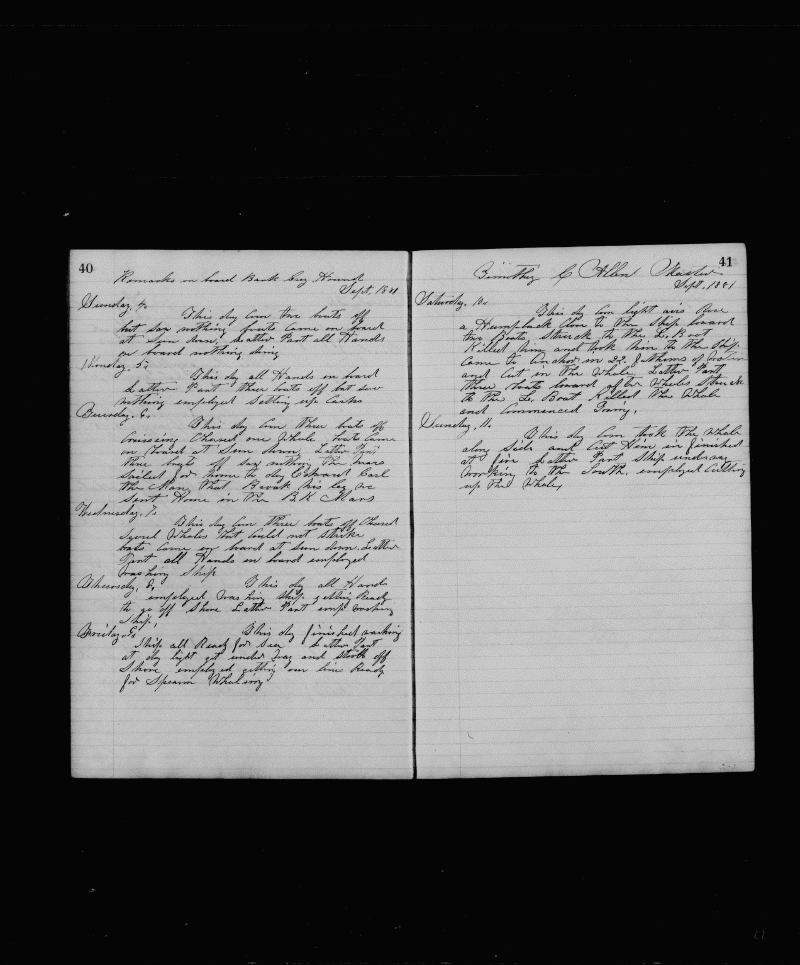 40
Remarks on board Bark Guy Hound
Sept, 1881
Sunday, 4.
This day Com two boats off
but saw nothing boats came on board
at sun down, Latter Part all Hands
on board nothing doing
Monday, 5.
This day all Hands on board
Latter Part three boats off but saw
nothing employed setting up Casks
Tuesday, 6.
This day Com three boats off
Cruising Chased one Whale, boats Came
on board at Sun down, Latter Part
three boats off saw nothing the mars
Sailed for home to day Edward Carl
the Man that Broak his leg we
Sent Home in the BK Mars
Wednesday, 7.
This day Com three boats off Chased
Whales but Could not strike
boats Came on board at sun down. Latter
Part all Hands on board employed
washing ship
Thursday, 8.
This day all Hands
employed washing ship getting Ready
to go off Shore Latter Part emp washing
Ship.
Friday, 9.
This day finished washing
Ship all Ready for Sea Latter Part
at day light got under Way and Stood off
Shore employed getting our line Ready
for Spearm Whaleing
41
Timothy C Allen Master
Sept, 1881
Saturday, 10.
This day Com light airs
a Humpback Close to the Ship
two Boats, Struck to the L, Boat
Killed him and took him to the Ship
Came to anchor in 22 fathoms of water
and Cut in the Whale, Latter Part
three boats of for Whales Struck
to the L, Boat Killed the Whale
and Commenced Towing,
Sunday, 11.
This day Com took the Whale
along Side and Cut Him in finished
at five Latter Part Ship underway
working to the South. employed Cutting
up the Whale,